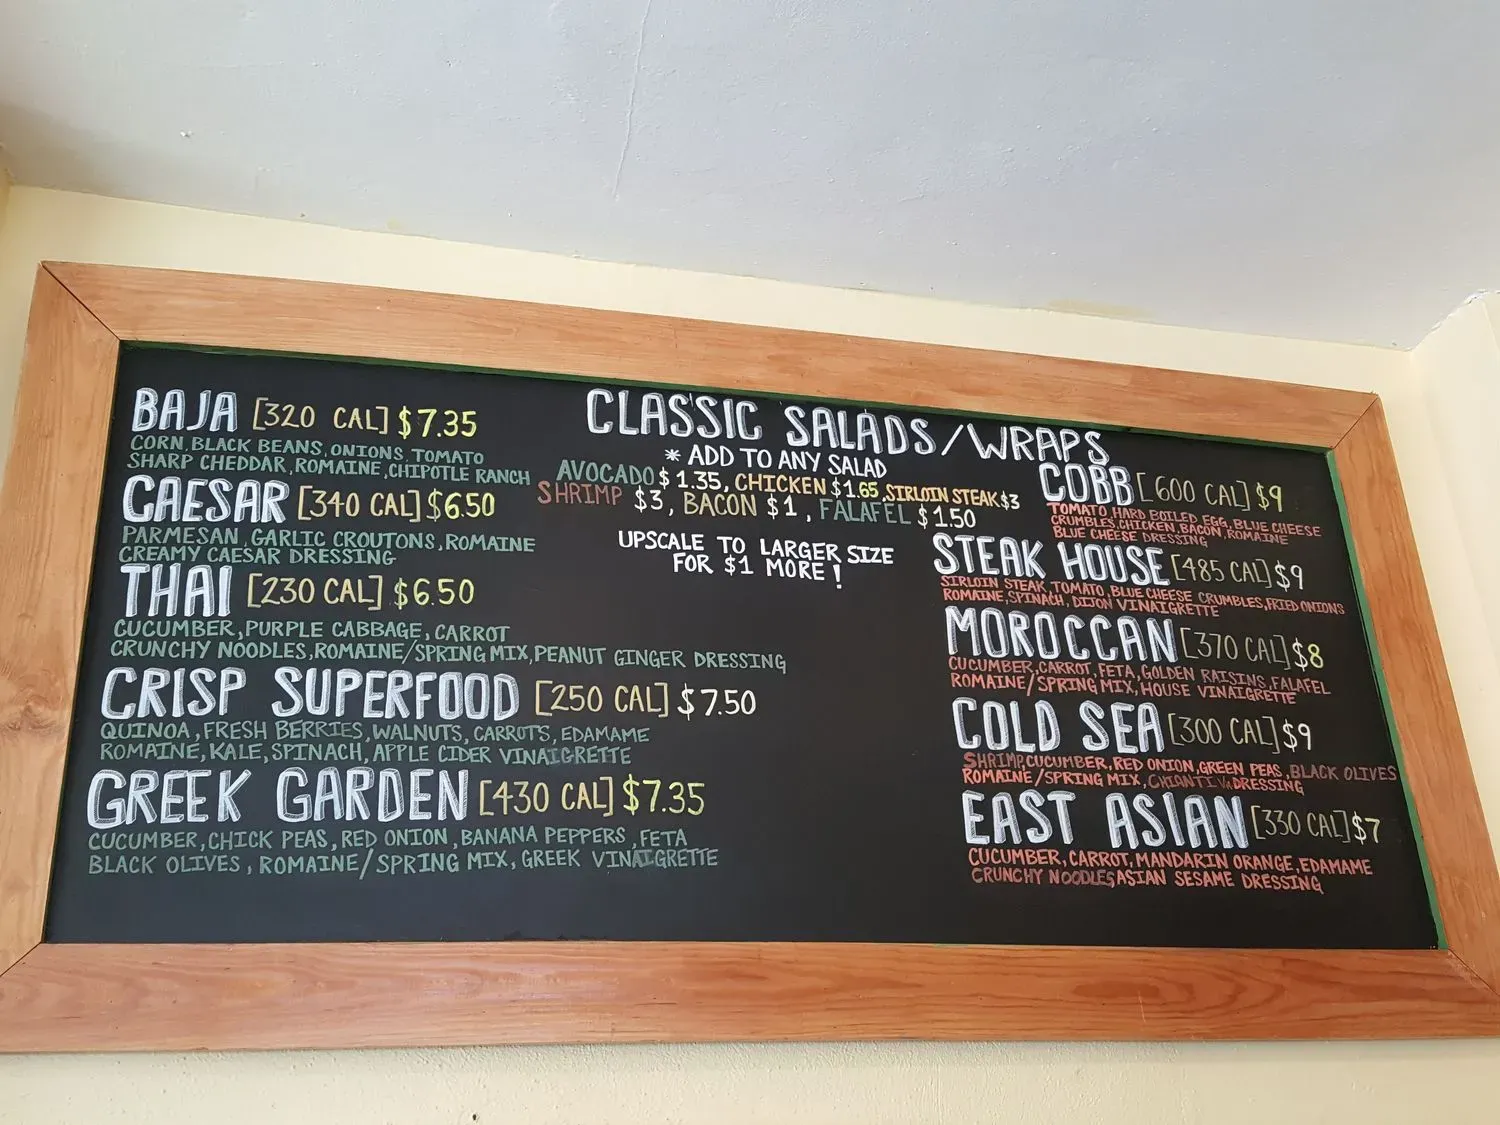 BAJA [320 CAL] $7.35
CORN, BLACK BEANS, ONIONS, TOMATO
SHARP CHEDDAR, ROMAINE, CHIPOTLE RANCH
CAESAR [340 CAL] $6.50
PARMESAN, GARLIC CROUTONS, ROMAINE
CREAMY CAESAR DRESSING
THAI [230 CAL] $6.50
CUCUMBER, PURPLE CABBAGE, CARROT
CRUNCHY NOODLES, ROMAINE/SPRING MIX, PEANUT GINGER DRESSING
CRISP SUPERFOOD [250 CAL] $7.50
QUINOA, FRESH BERRIES, WALNUTS, CARROTS, EDAMAME
ROMAINE, KALE, SPINACH, APPLE CIDER VINAIGRETTE
GREEK GARDEN [430 CAL] $7.35
CUCUMBER, CHICK PEAS, RED ONION, BANANA PEPPERS, FETA
BLACK OLIVES, ROMAINE/SPRING MIX, GREEK VINAIGRETTE
CLASSIC SALADS/WRAPS
* ADD TO ANY SALAD
AVOCADO $1.35, CHICKEN $1.65, SIRLOIN STEAK $3
SHRIMP $3, BACON $1, FALAFEL $1.50
UPSCALE TO LARGER SIZE
FOR $1 MORE!
COBB [600 CAL] $9
TOMATO, HARD BOILED EGG, BLUE CHEESE
CRUMBLES, CHICKEN, BACON, ROMAINE
BLUE CHEESE DRESSING
STEAK HOUSE [485 CAL] $9
SIRLOIN STEAK, TOMATO, BLUE CHEESE CRUMBLES, FRIED ONIONS
ROMAINE, SPINACH, DIJON VINAIGRETTE
MOROCCAN [370 CAL] $8
CUCUMBER, CARROT, FETA, GOLDEN RAISINS, FALAFEL
ROMAINE/SPRING MIX, HOUSE VINAIGRETTE
COLD SEA [300 CAL] $9
SHRIMP, CUCUMBER, RED ONION, GREEN PEAS, BLACK OLIVES
ROMAINE/SPRING MIX, CHIANTI DRESSING
EAST ASIAN [330 CAL] $7
CUCUMBER, CARROT, MANDARIN ORANGE, EDAMAME
CRUNCHY NOODLES, ASIAN SESAME DRESSING